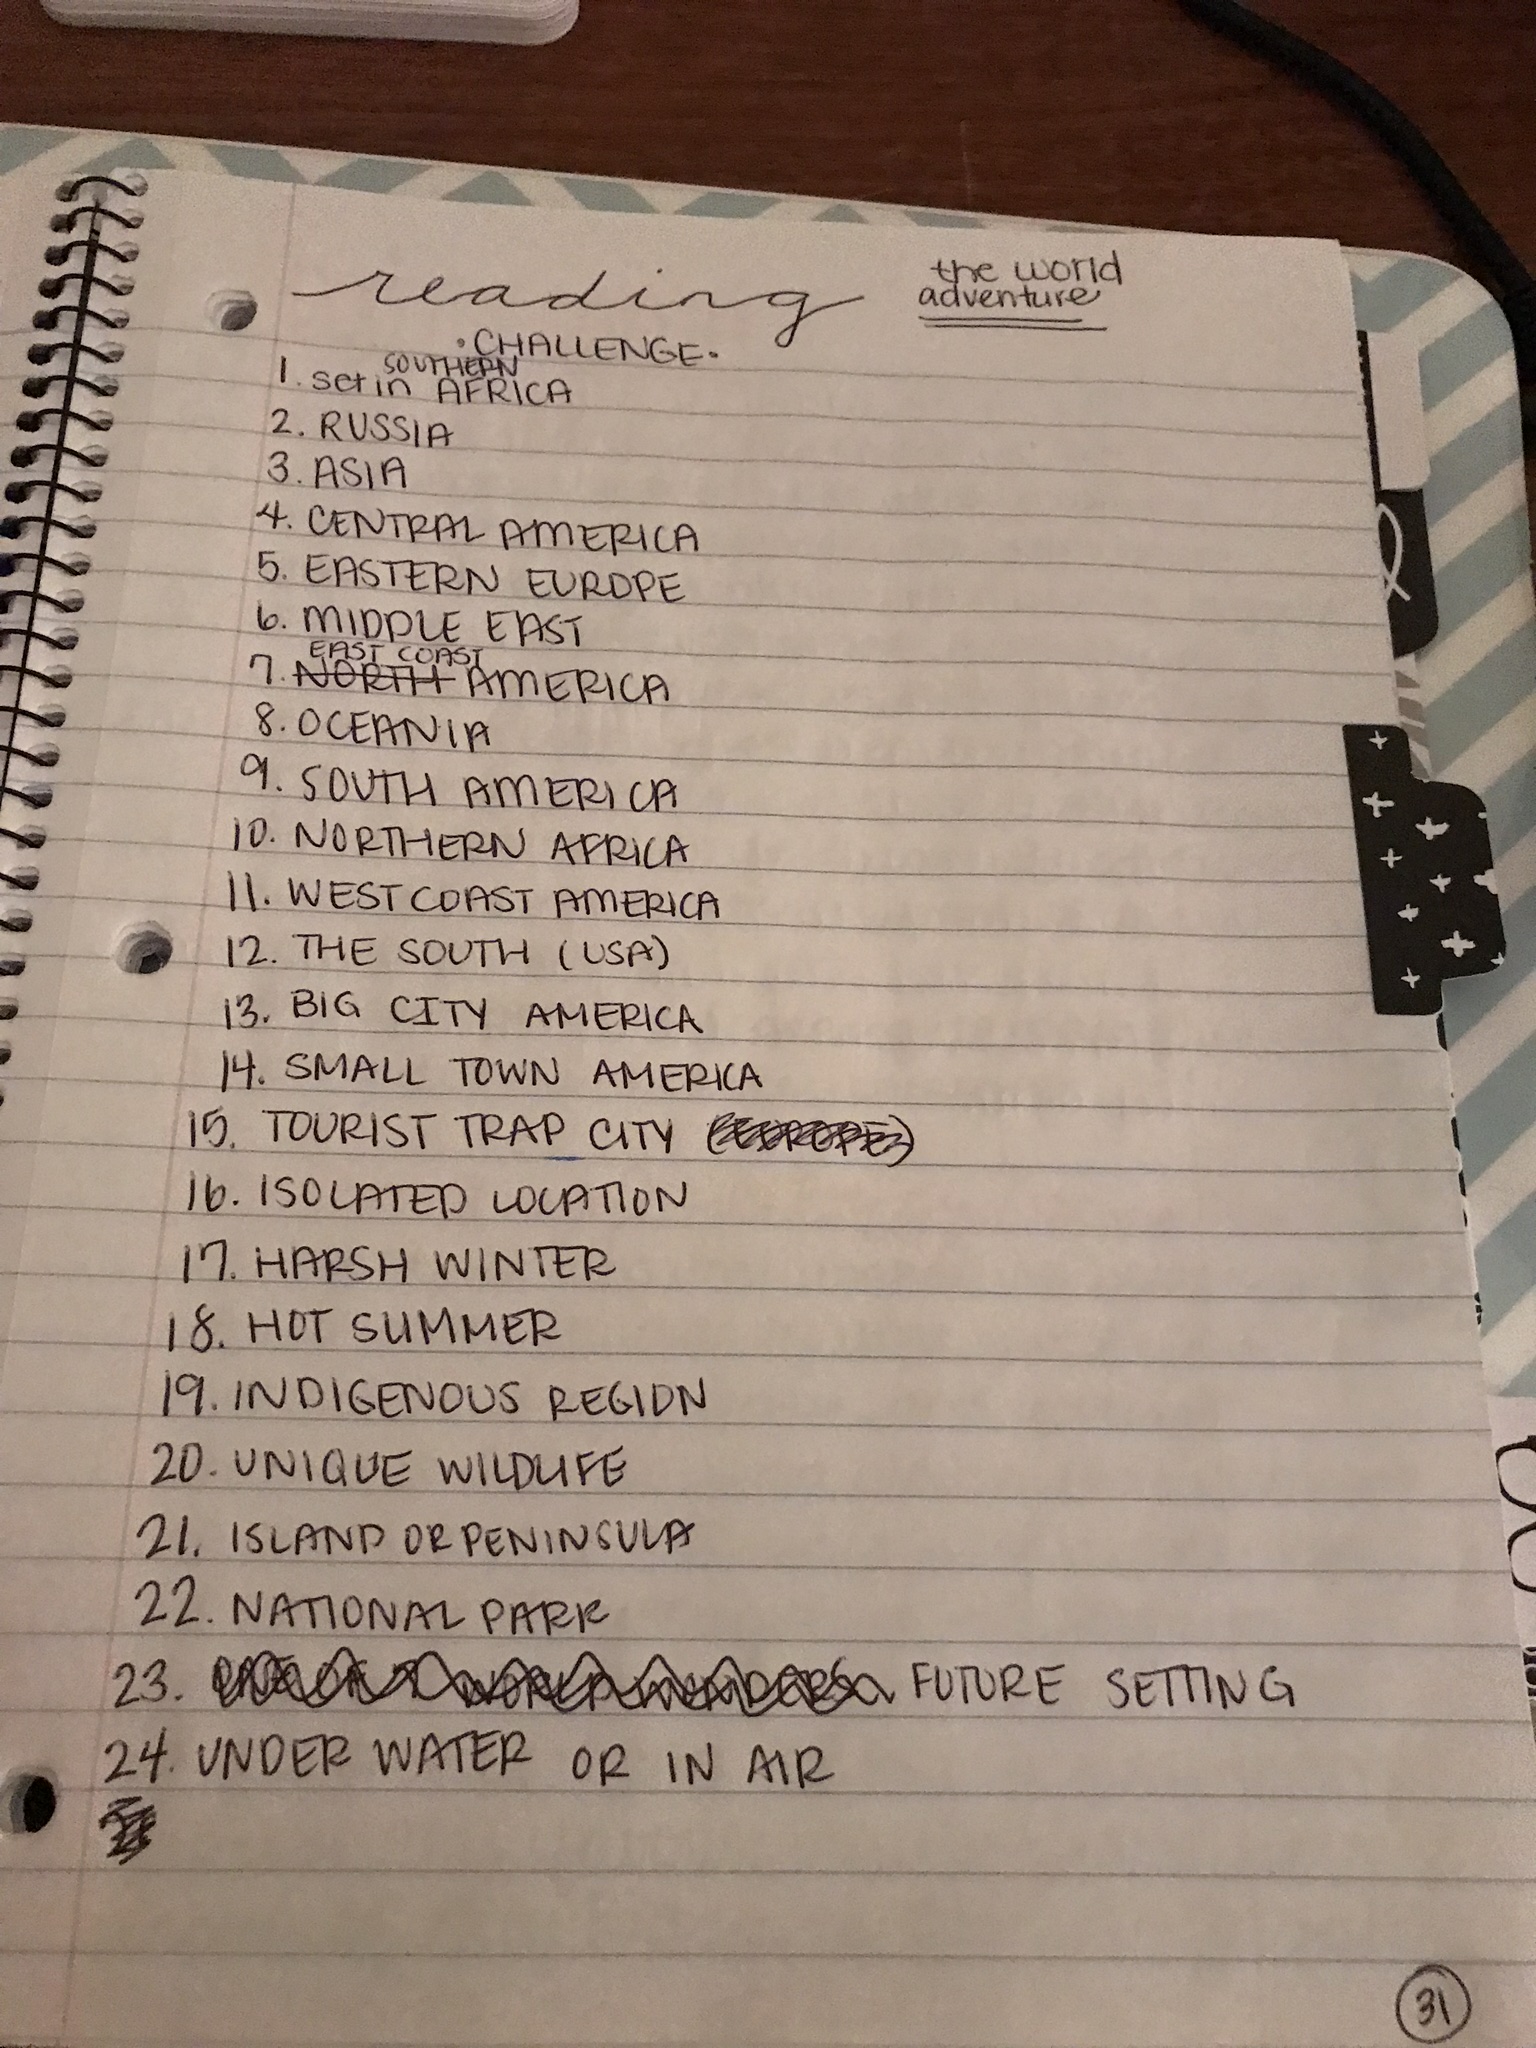 reading
the world
adventure
·CHALLENGE·
SOUTHERN
1. set in AFRICA
2. RUSSIA
3. ASIA
4. CENTRAL AMERICA
5. EASTERN EUROPE
6. MIDDLE EAST
EAST COAST
7. NORTH AMERICA
8. OCEANIA
9. SOUTH AMERICA
10. NORTHERN AFRICA
11. WEST COAST AMERICA
12. THE SOUTH (USA)
13. BIG CITY AMERICA
14. SMALL TOWN AMERICA
15. TOURIST TRAP CITY (EUROPE)
16. ISOLATED LOCATION
17. HARSH WINTER
18. HOT SUMMER
19. INDIGENOUS REGION
20. UNIQUE WILDLIFE
21. ISLAND OR PENINSULA
22. NATIONAL PARK
23. FUTURE SETTING
24. UNDER WATER OR IN AIR
31